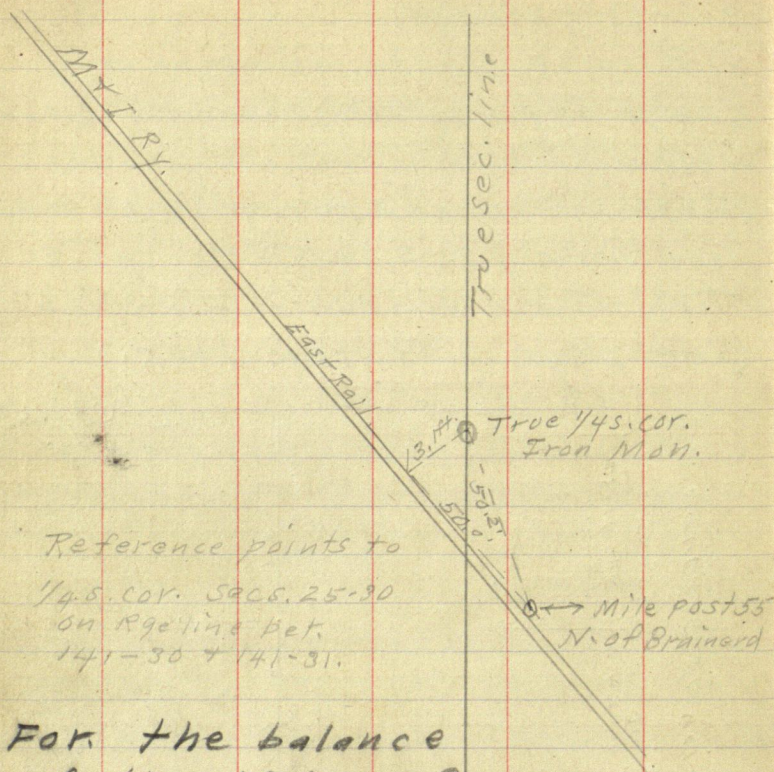 M & I Ry.
True sec. line
East Rail
13.1 ft.
True 1/4 s. cor.
Iron Mon.
50.2
50.0
Reference points to
1/4 s. cor. Secs. 25-30
on Rge line bet.
141-30 & 141-31.
Mile post 55
N. of Brainard
For the balance